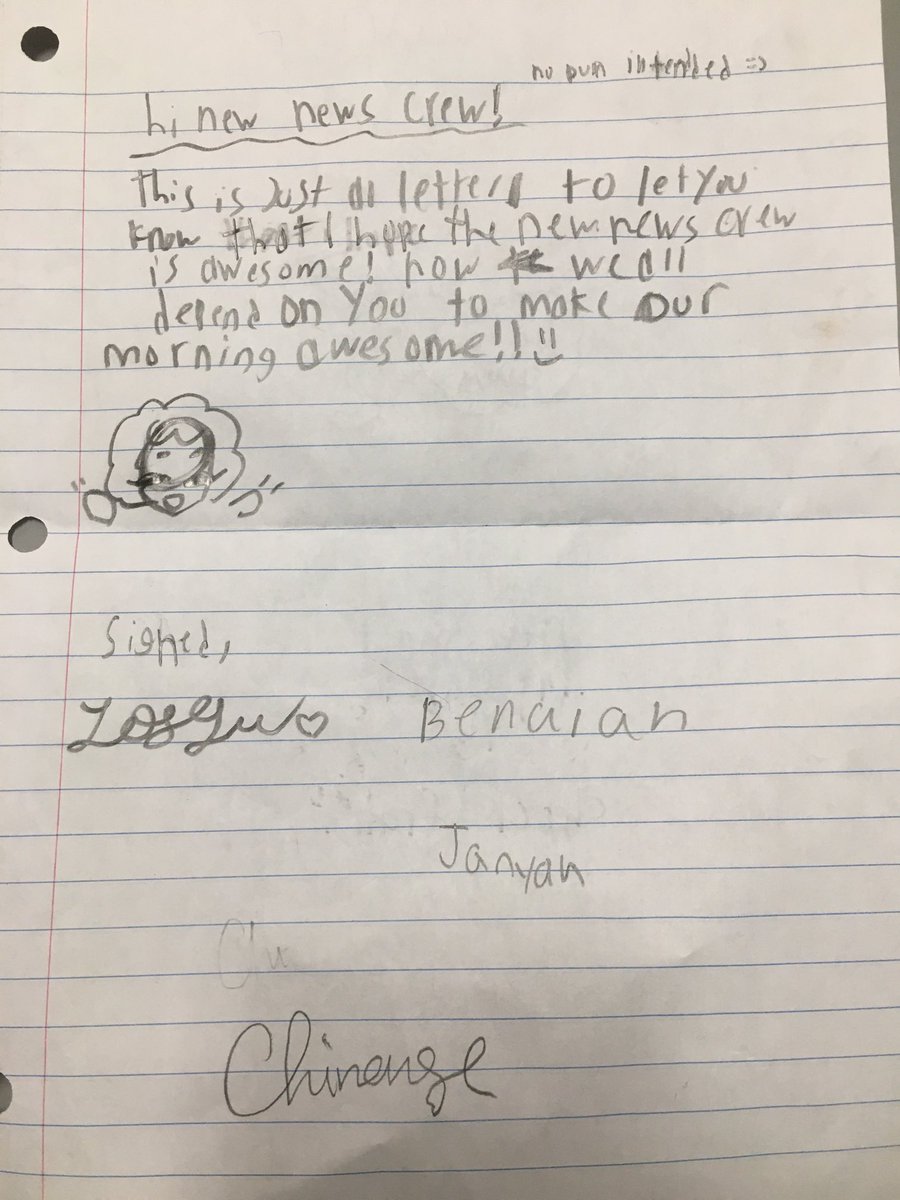 no pun intended =>
hi new news crew!
This is Just a letter to let you
know that I hope the new news crew
is awesome! now we all
depend on You to make our
morning awesome!!
Signed,
Benaiah
Janyah
Chu